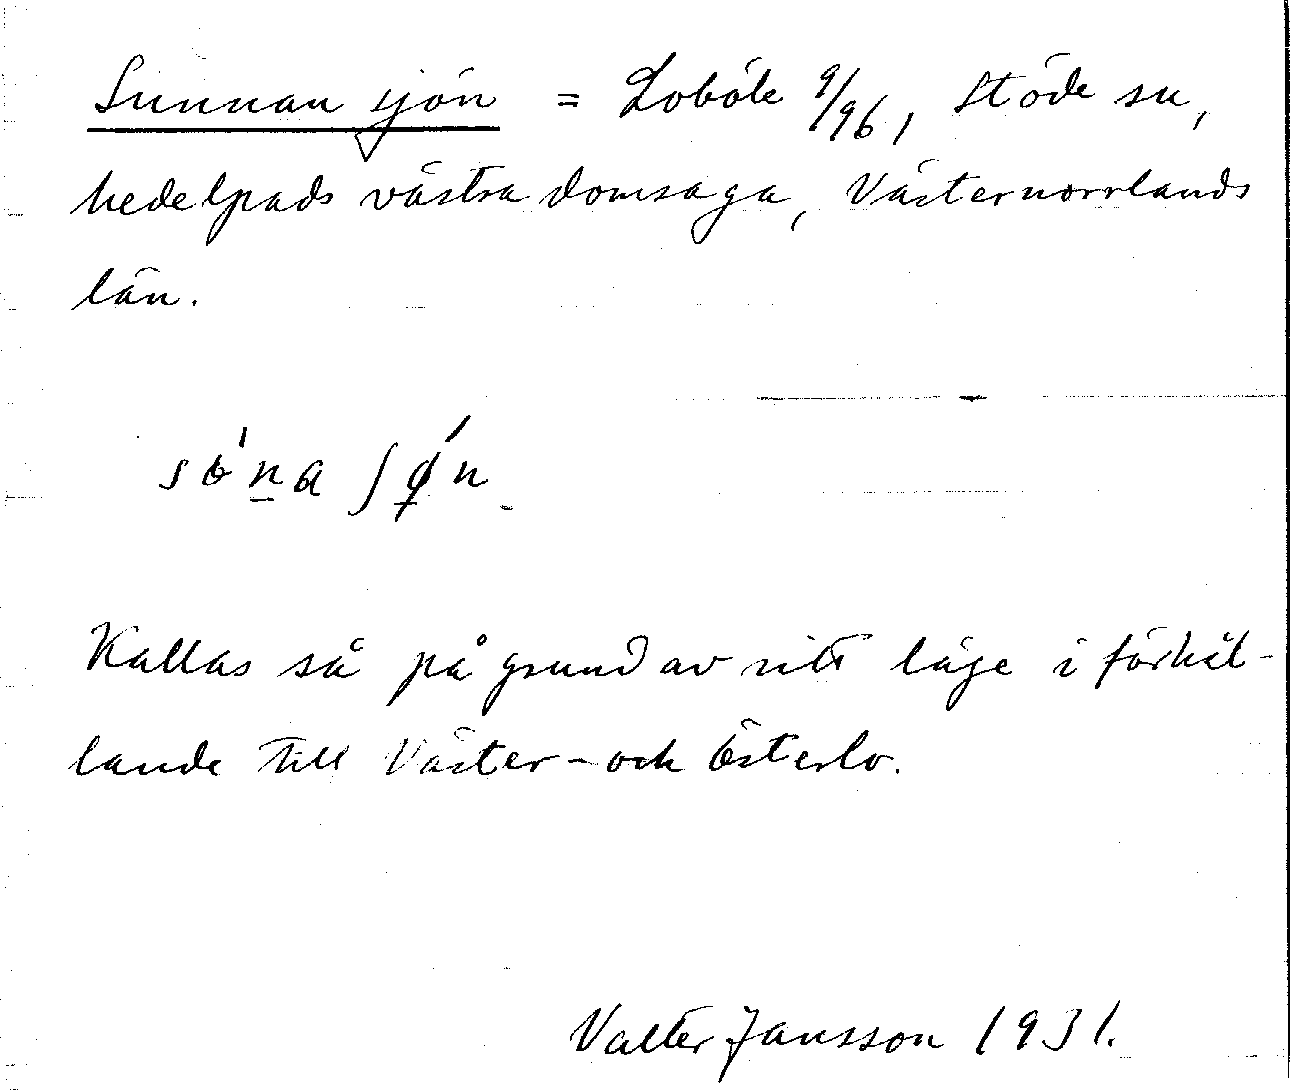 Sunnan sjön = Loböle 9/96, Stöde sn,
Medelpads västra domsaga, Västernorrlands
län.
Kallas så på grund av sitt läge i förhål-
lande till Väster- och Österlo.
Valter Jansson 1931.